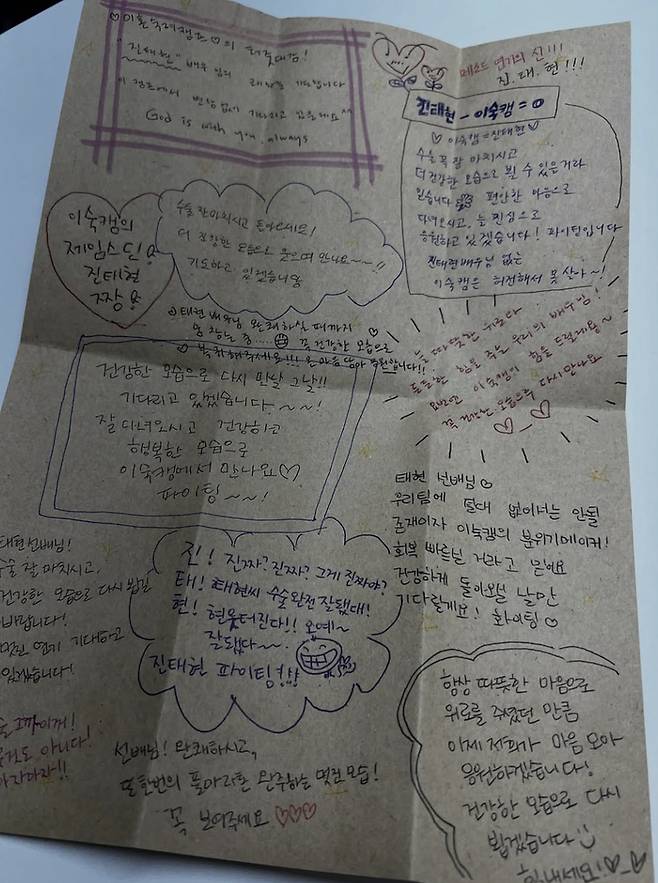 ♡이혼숙려캠프♡의 최롯대감!
"진태현" 배우님의
이 캠프에서 변함없이 기다리고 있을게요^^
God is with you, always
메소드 연기의 신!!!
진.태.현!!!
진태현-이숙캠=0
♡이숙캠=진태현♡
수술 꼭 잘 마치시고
더 건강한 모습으로 뵐 수 있을거라
믿습니다 편안한 마음으로
다녀오시고, 늘 진심으로
응원하고 있겠습니다! 파이팅입니다
진태현배우님 없는
이숙캠은 허전해서 못 산다~!
이숙캠의
제임스딘
진태현
짱
수술 잘 마치시고 돌아오세요!
더 건강한 모습으로 웃으며 만나요~~!!
기도하고 있겠습니다
태현 배우님 완쾌하실 때까지
꼭 건강한 모습으로
복귀해주세요!!! 온 마음 담아 응원합니다!!
건강한 모습으로 다시 만날 그날!!
기다리고 있겠습니다~~!
잘 다녀오시고 건강하고
행복한 모습으로
이숙캠에서 만나요♡
파이팅~~!
늘 따뜻한 위로와
든든한 힘을 주는 우리의 배우님!
이숙캠이 힘을 드릴게용~
꼭 건강한 모습으로 다시 만나요
♡-♡
태현 선배님♡
우리팀에 절대 없어서는 안될
존재이자 이숙캠의 분위기메이커!
회복 빠르실 거라고 믿어요
건강하게 돌아오실 날만
기다릴게요! 화이팅♡
태현선배님!
수술 잘 마치시고,
건강한 모습으로 다시 뵙길
바랍니다!
멋진 연기 기대하고
있겠습니다!
진! 진짜? 진짜? 그게 진짜야?
태! 태현씨 수술 완전 잘됐대!
현! 현웃터진다!! 오예~
잘됐다~~.
진태현 파이팅!!!
수술 그까이꺼!
아무것도 아니다!
아자아자!!
선배님! 완쾌하시고,
또 한번의 풀마라톤 완주하는 멋진 모습!
꼭 보여주세요♡♡♡
항상 따뜻한 마음으로
위로를 주셨던 만큼
이제 저희가 마음 모아
응원하겠습니다!
건강한 모습으로 다시
뵙겠습니다 :)